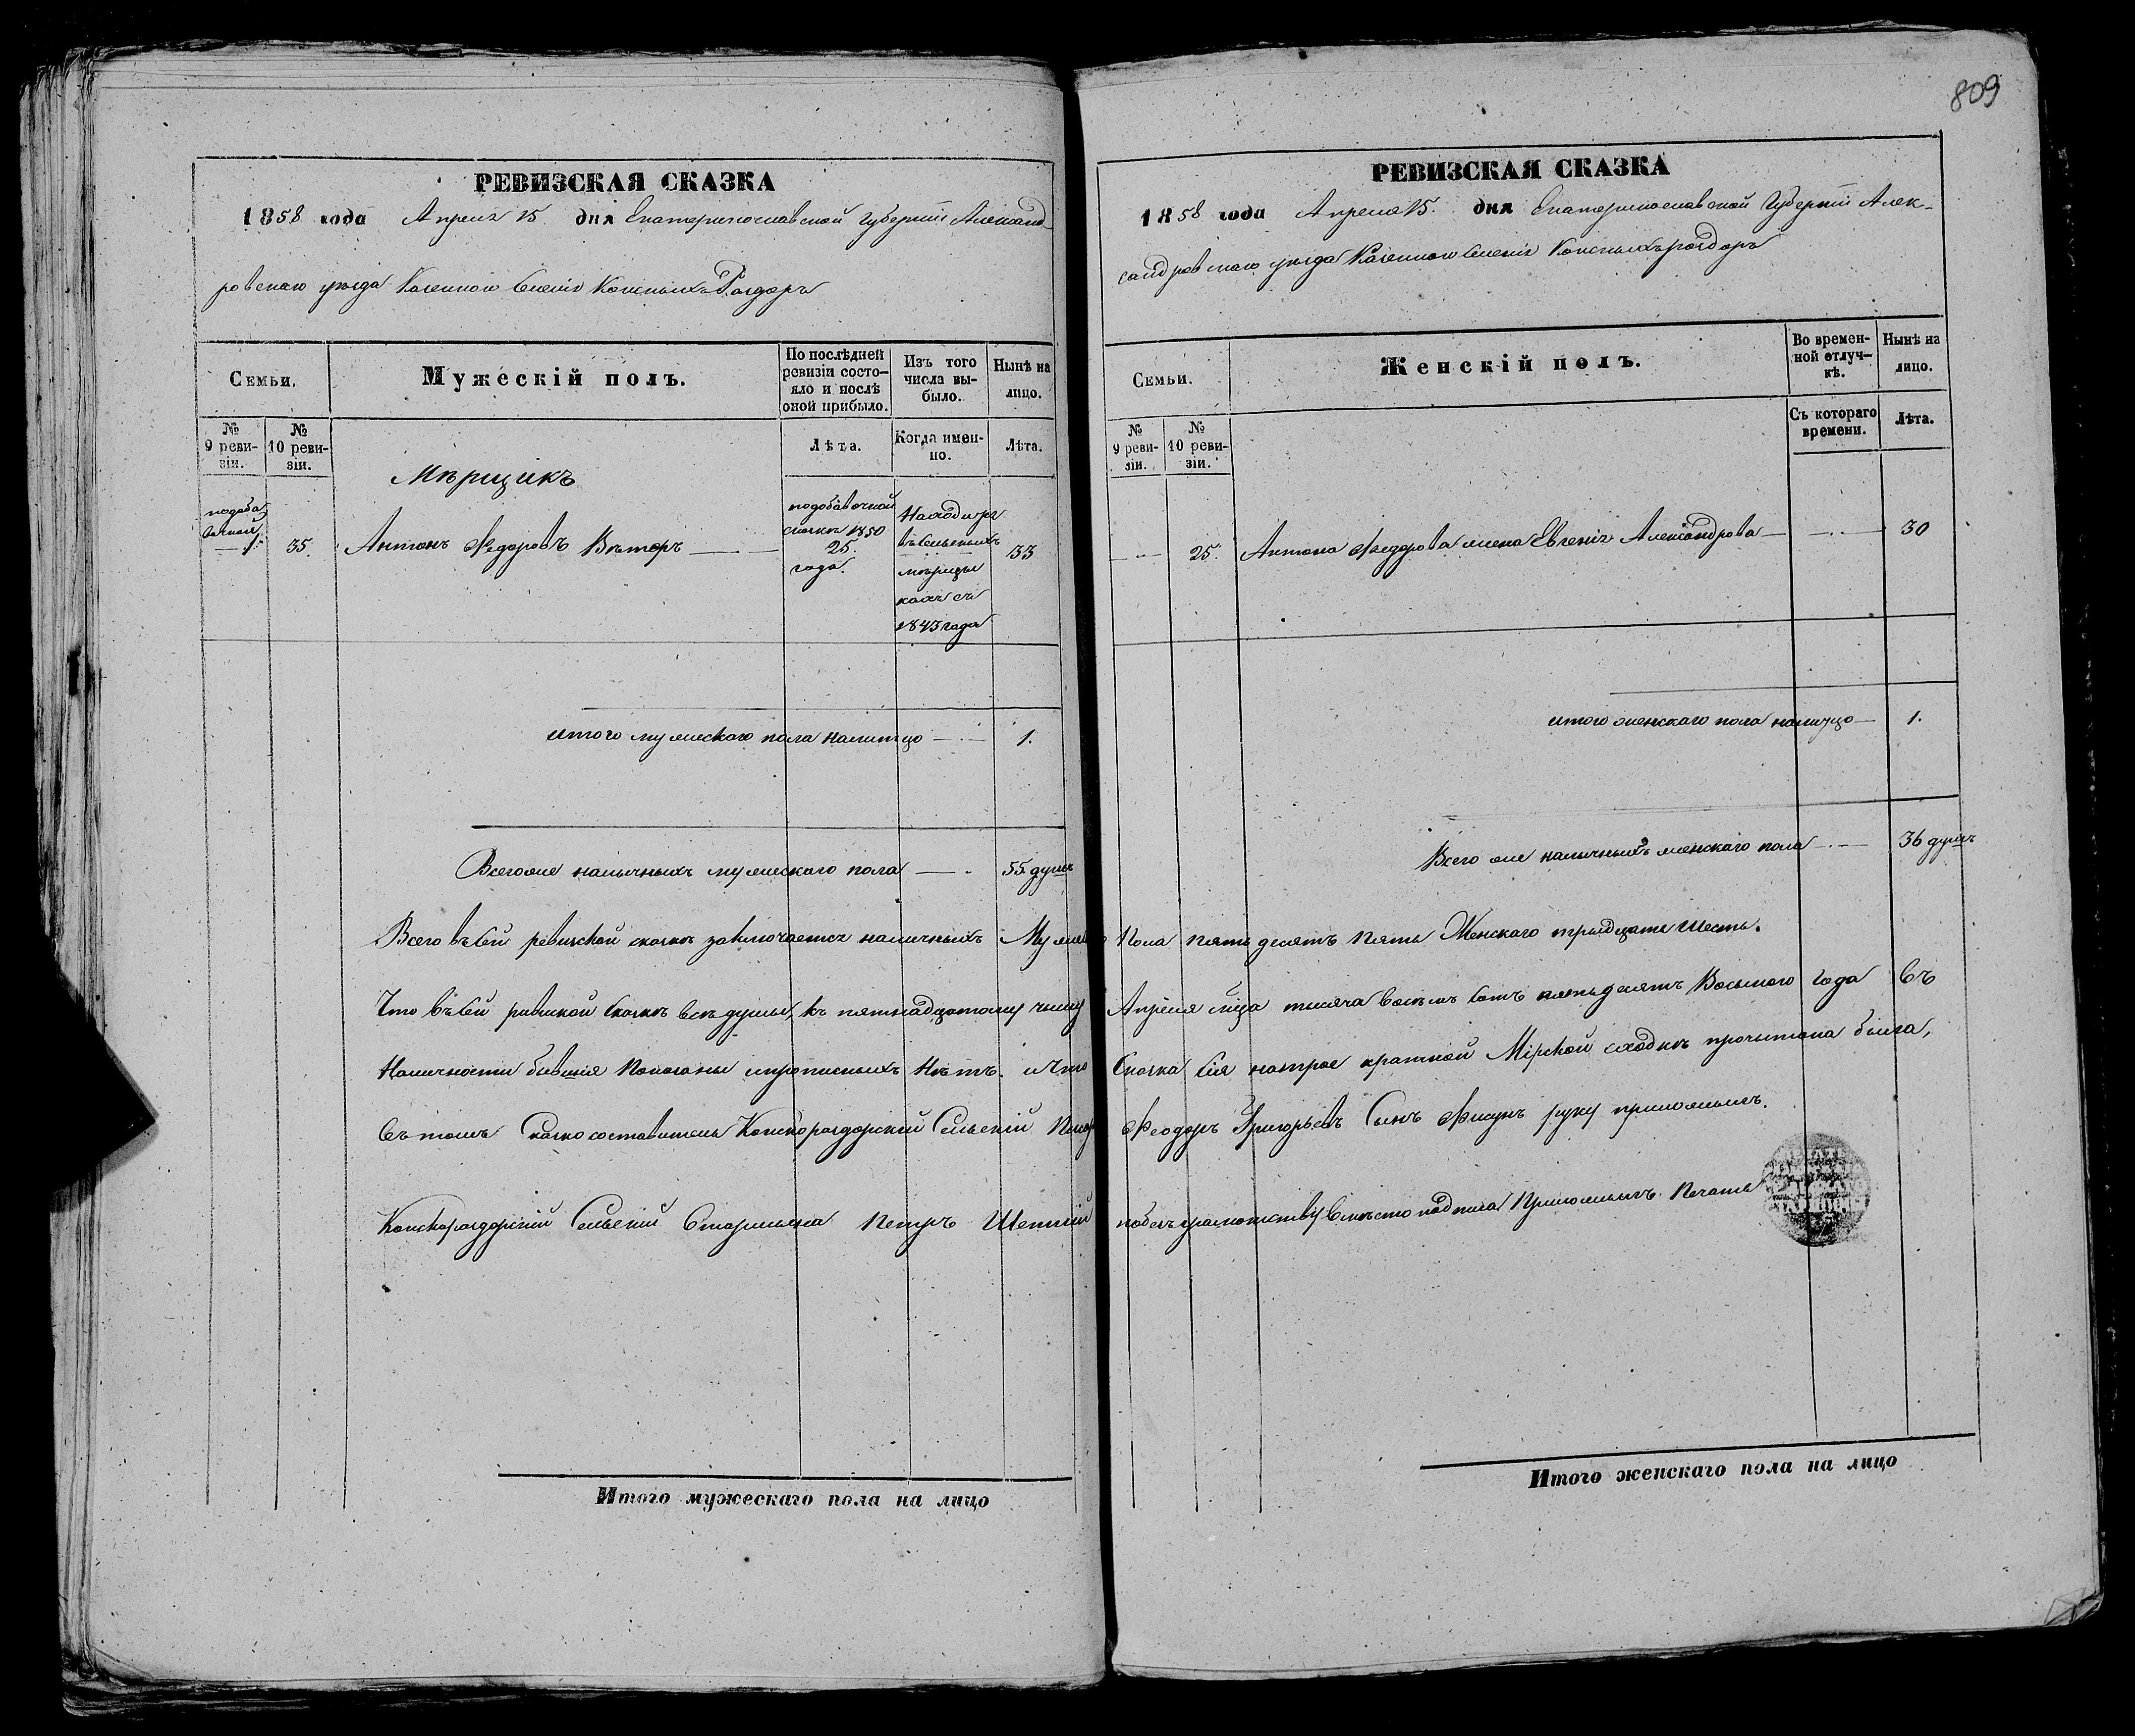 809
РЕВИЗСКАЯ СКАЗКА
1858 года Апреля 15 дня Екатеринославской Губернiи Александ
ровскаго уезда Казенного Селенiя Конскихъ Раздоръ
Семьи.
Мужескiй полъ.
По послѣдней ревизiи состо-
яло и послѣ оной прибыло.
Изъ того числа вы-
было.
Нынѣ на лицо.
№ 9 реви-
зiи.
№ 10 реви-
зiи.
Лѣта.
Когда имен-
но.
Лѣта.
Мѣрщикъ
подоба
вочной
1.
35.
Антонъ Федоровъ Вѣтеръ
подобавочной
сказкѣ 1850
25.
года.
Находитя
въ сельскихъ
мѣрщи
кахъ съ
1843 года
33
итого мужескаго пола налитцо 1.
Всегоже наличныхъ мужескаго пола 55 душъ
РЕВИЗСКАЯ СКАЗКА
1858 года Апреля 15. дня Екатеринославской Губернiи Алек-
сандровскаго уезда Казенного Селенiя Конскихъ раздоръ
Семьи.
Женскiй полъ.
Во времен-
ной отлуч-
кѣ.
Нынѣ на лицо.
№ 9 реви-
зiи.
№ 10 реви-
зiи.
Съ котораго времени.
Лѣта.
25. Антона Федорова жена Евгенiя Александрова 30
итого женскаго пола налицо 1.
Всего же наличныхъ женскаго пола 36 душъ
Всего въ сей ревизской сказкѣ заключается наличныхъ Муже Пола пять десятъ пять Женскаго тридцать шесть.
Что въ сей ревиской сказкѣ всѣ душы, къ пятнадцатому числу Апреля мца тысяча восемь сотъ пятьдесятъ Восьмого года въ
Наличности бывшiя показаны ипрописныхъ Нѣтъ. и Что Сказка сiя натрое кратной Мiрской сходкѣ прочытана была,
Въ томъ Сказкосоставитель Конскораздорскiй Сельскiй Феодоръ Григорьевъ Сынъ руку приложилъ.
Конскораздорскiй Сельскiй Старшына Петръ побезграмотству вместо подписа Приложылъ Печать
Итого мужескаго пола на лицо
Итого женскаго пола на лицо